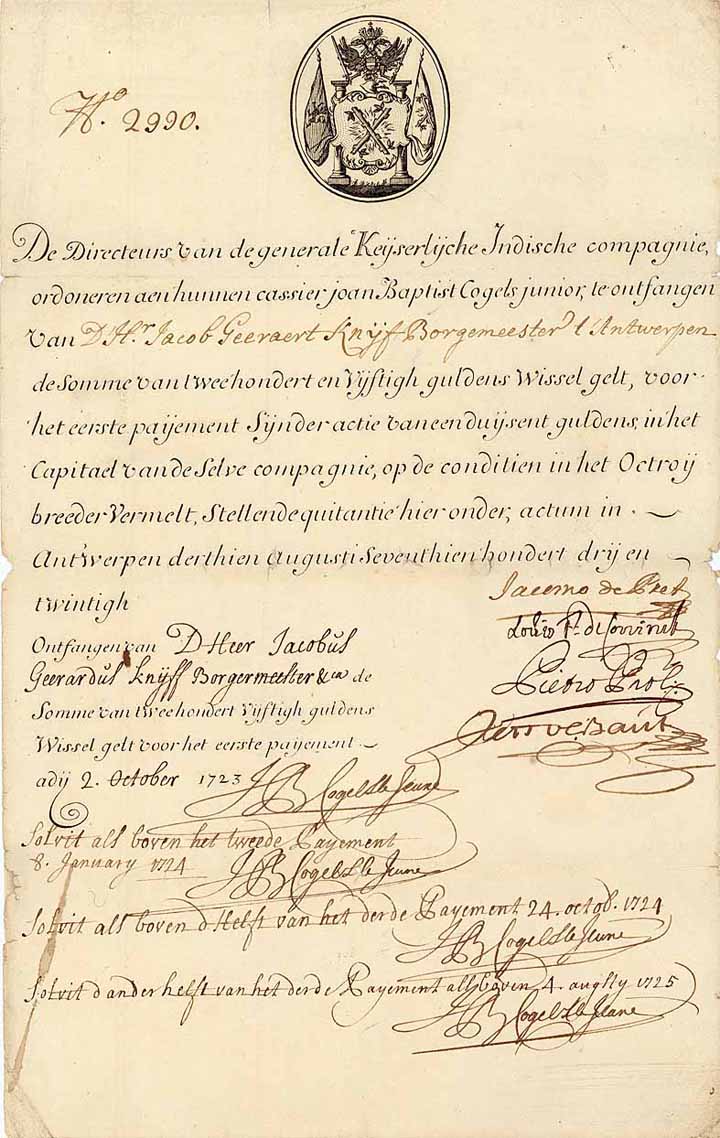 No. 2990.
De Directeurs van de generale Keyserlijche Indische compagnie,
ordoneren aen hunnen cassier joan Baptist Cogels junior, te ontfangen
van D'Hr. Jacob Geeraert Knijf Borgemeester t'Antwerpen
de Somme van twee hondert en Vijftigh guldens Wissel gelt, voor
het eerste paijement Sijnder actie van een duijsent guldens, in het
Capitael van de Selve compagnie, op de conditien in het Octroij
breeder Vermelt, Stellende quitantie hier onder, actum in
Antwerpen derthien Augusti Seventhien hondert drij en
twintigh
Jacomo de Pret
Louis F. de Coninck
Pietro Proli
Ontfangen van D Heer Jacobus
Geerardus Knijff Borgermeester &ca de
Somme van twee hondert Vijftigh guldens
Wissel gelt voor het eerste paijement
adij 2. October 1723 JB Cogels le Jeune
Solvit als boven het tweede Payement
8. January 1724 JB Cogels le Jeune
Solvit als boven d'Helft van het derde Payement 24. octob. 1724
JB Cogels le Jeune
Solvit d'ander helft van het derde Payement als boven 4. augsty 1725
JB Cogels le Jeune